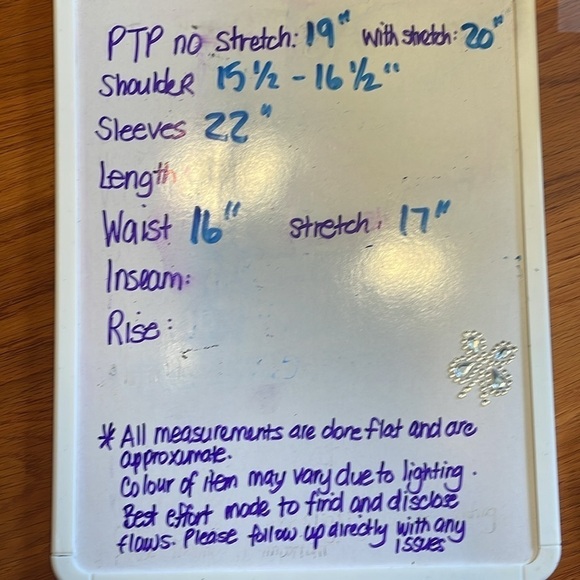 PTP no stretch: 19" with stretch: 20"
Shoulder 15 1/2 - 16 1/2"
Sleeves 22"
Length
Waist 16" stretch: 17"
Inseam:
Rise:
* All measurements are done flat and are
approximate.
Colour of item may vary due to lighting.
Best effort made to find and disclose
flaws. Please follow up directly with any
issues